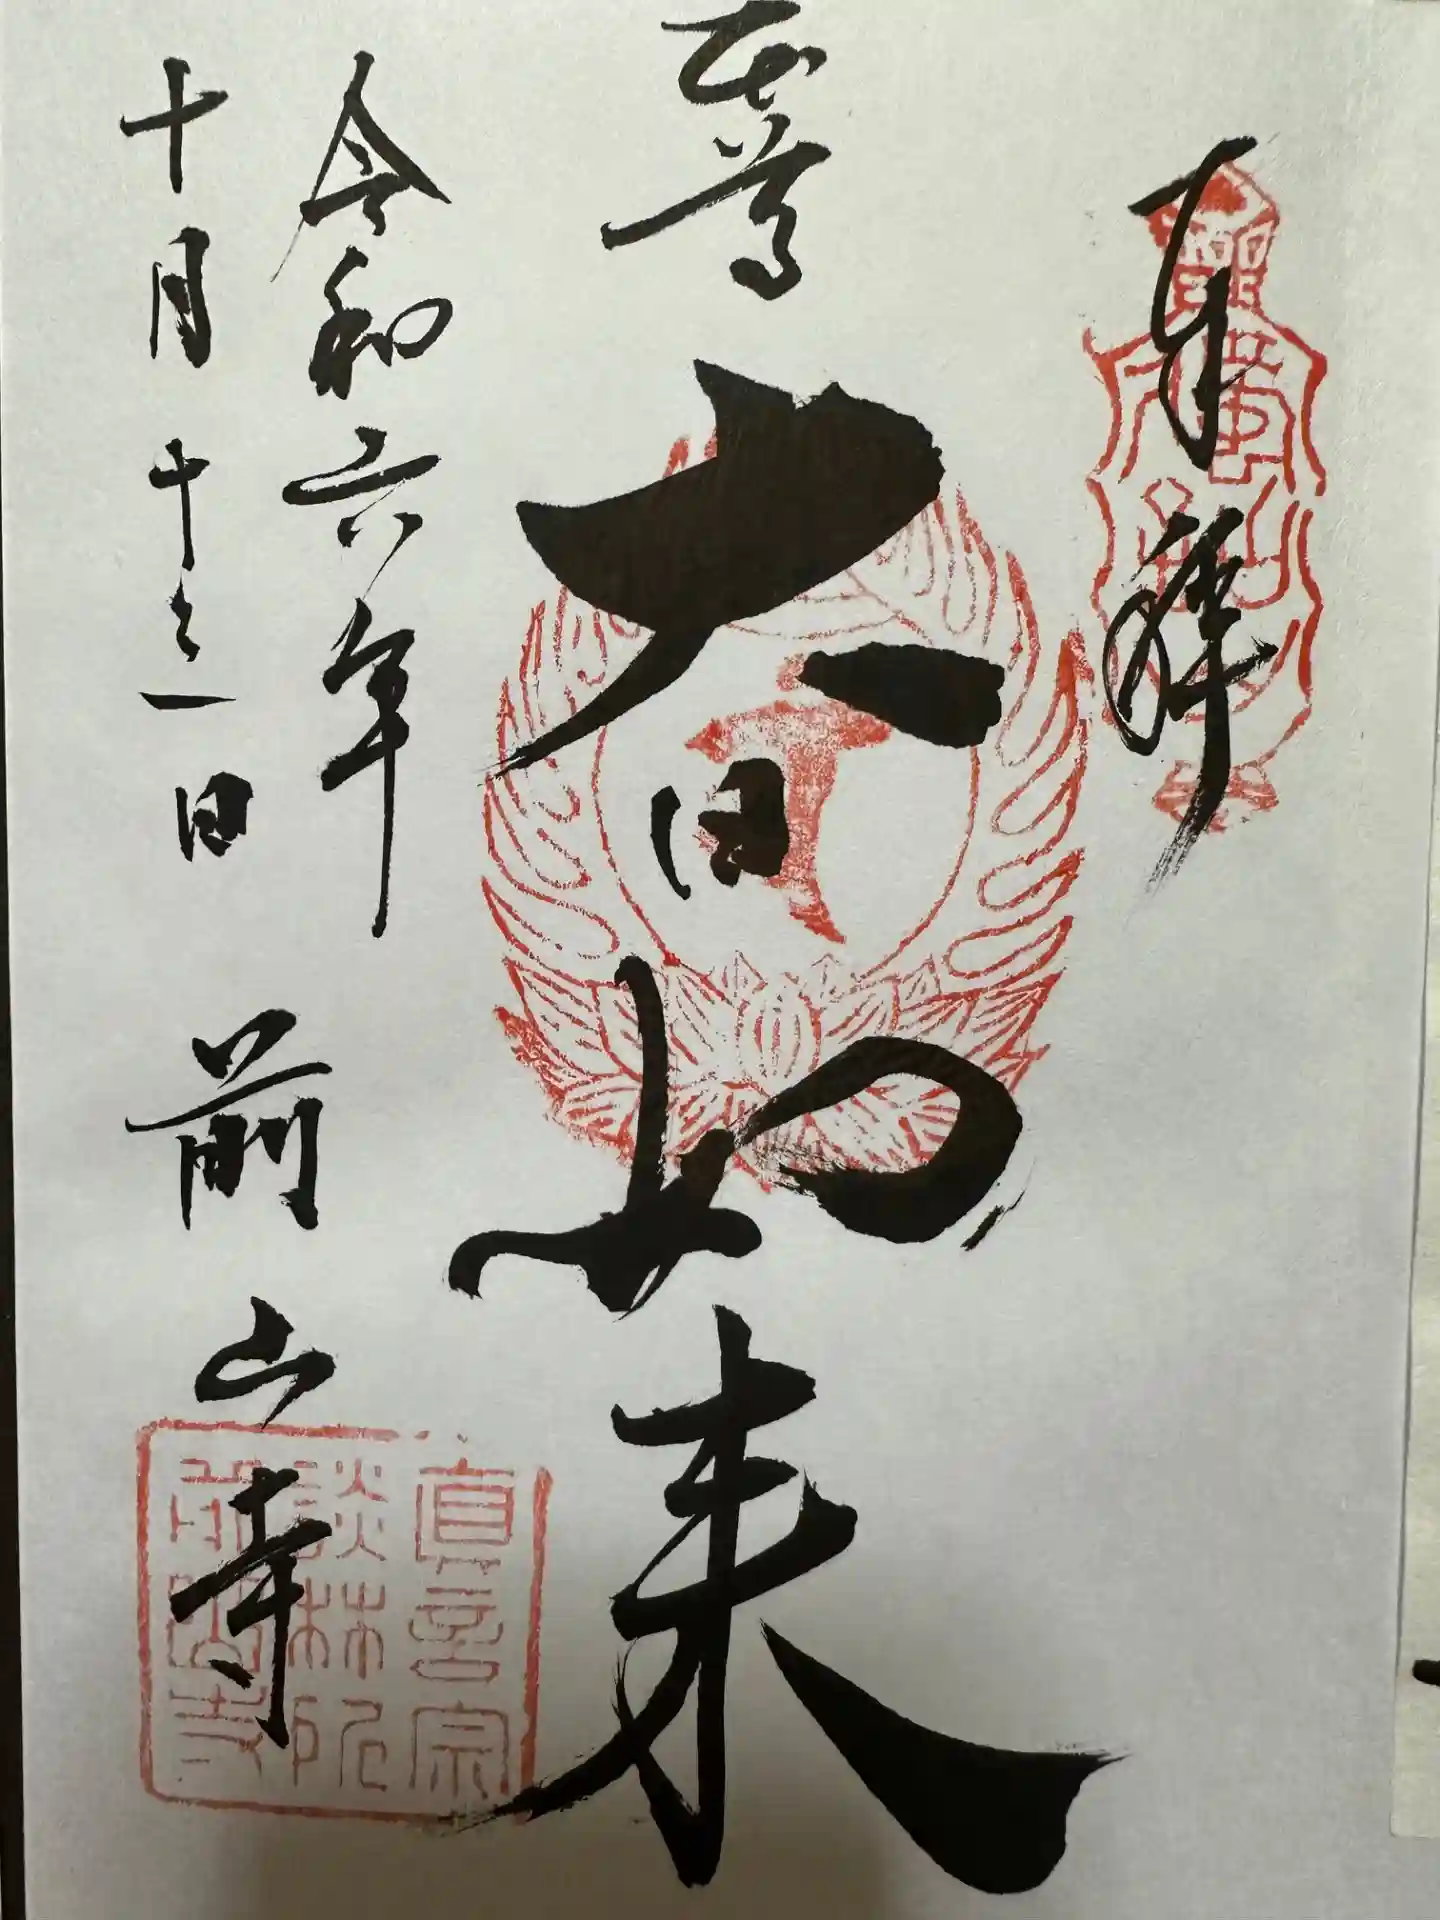 奉拝
本尊
大日如来
令和六年
十月十三日
前山寺
真言宗
談林
前山寺